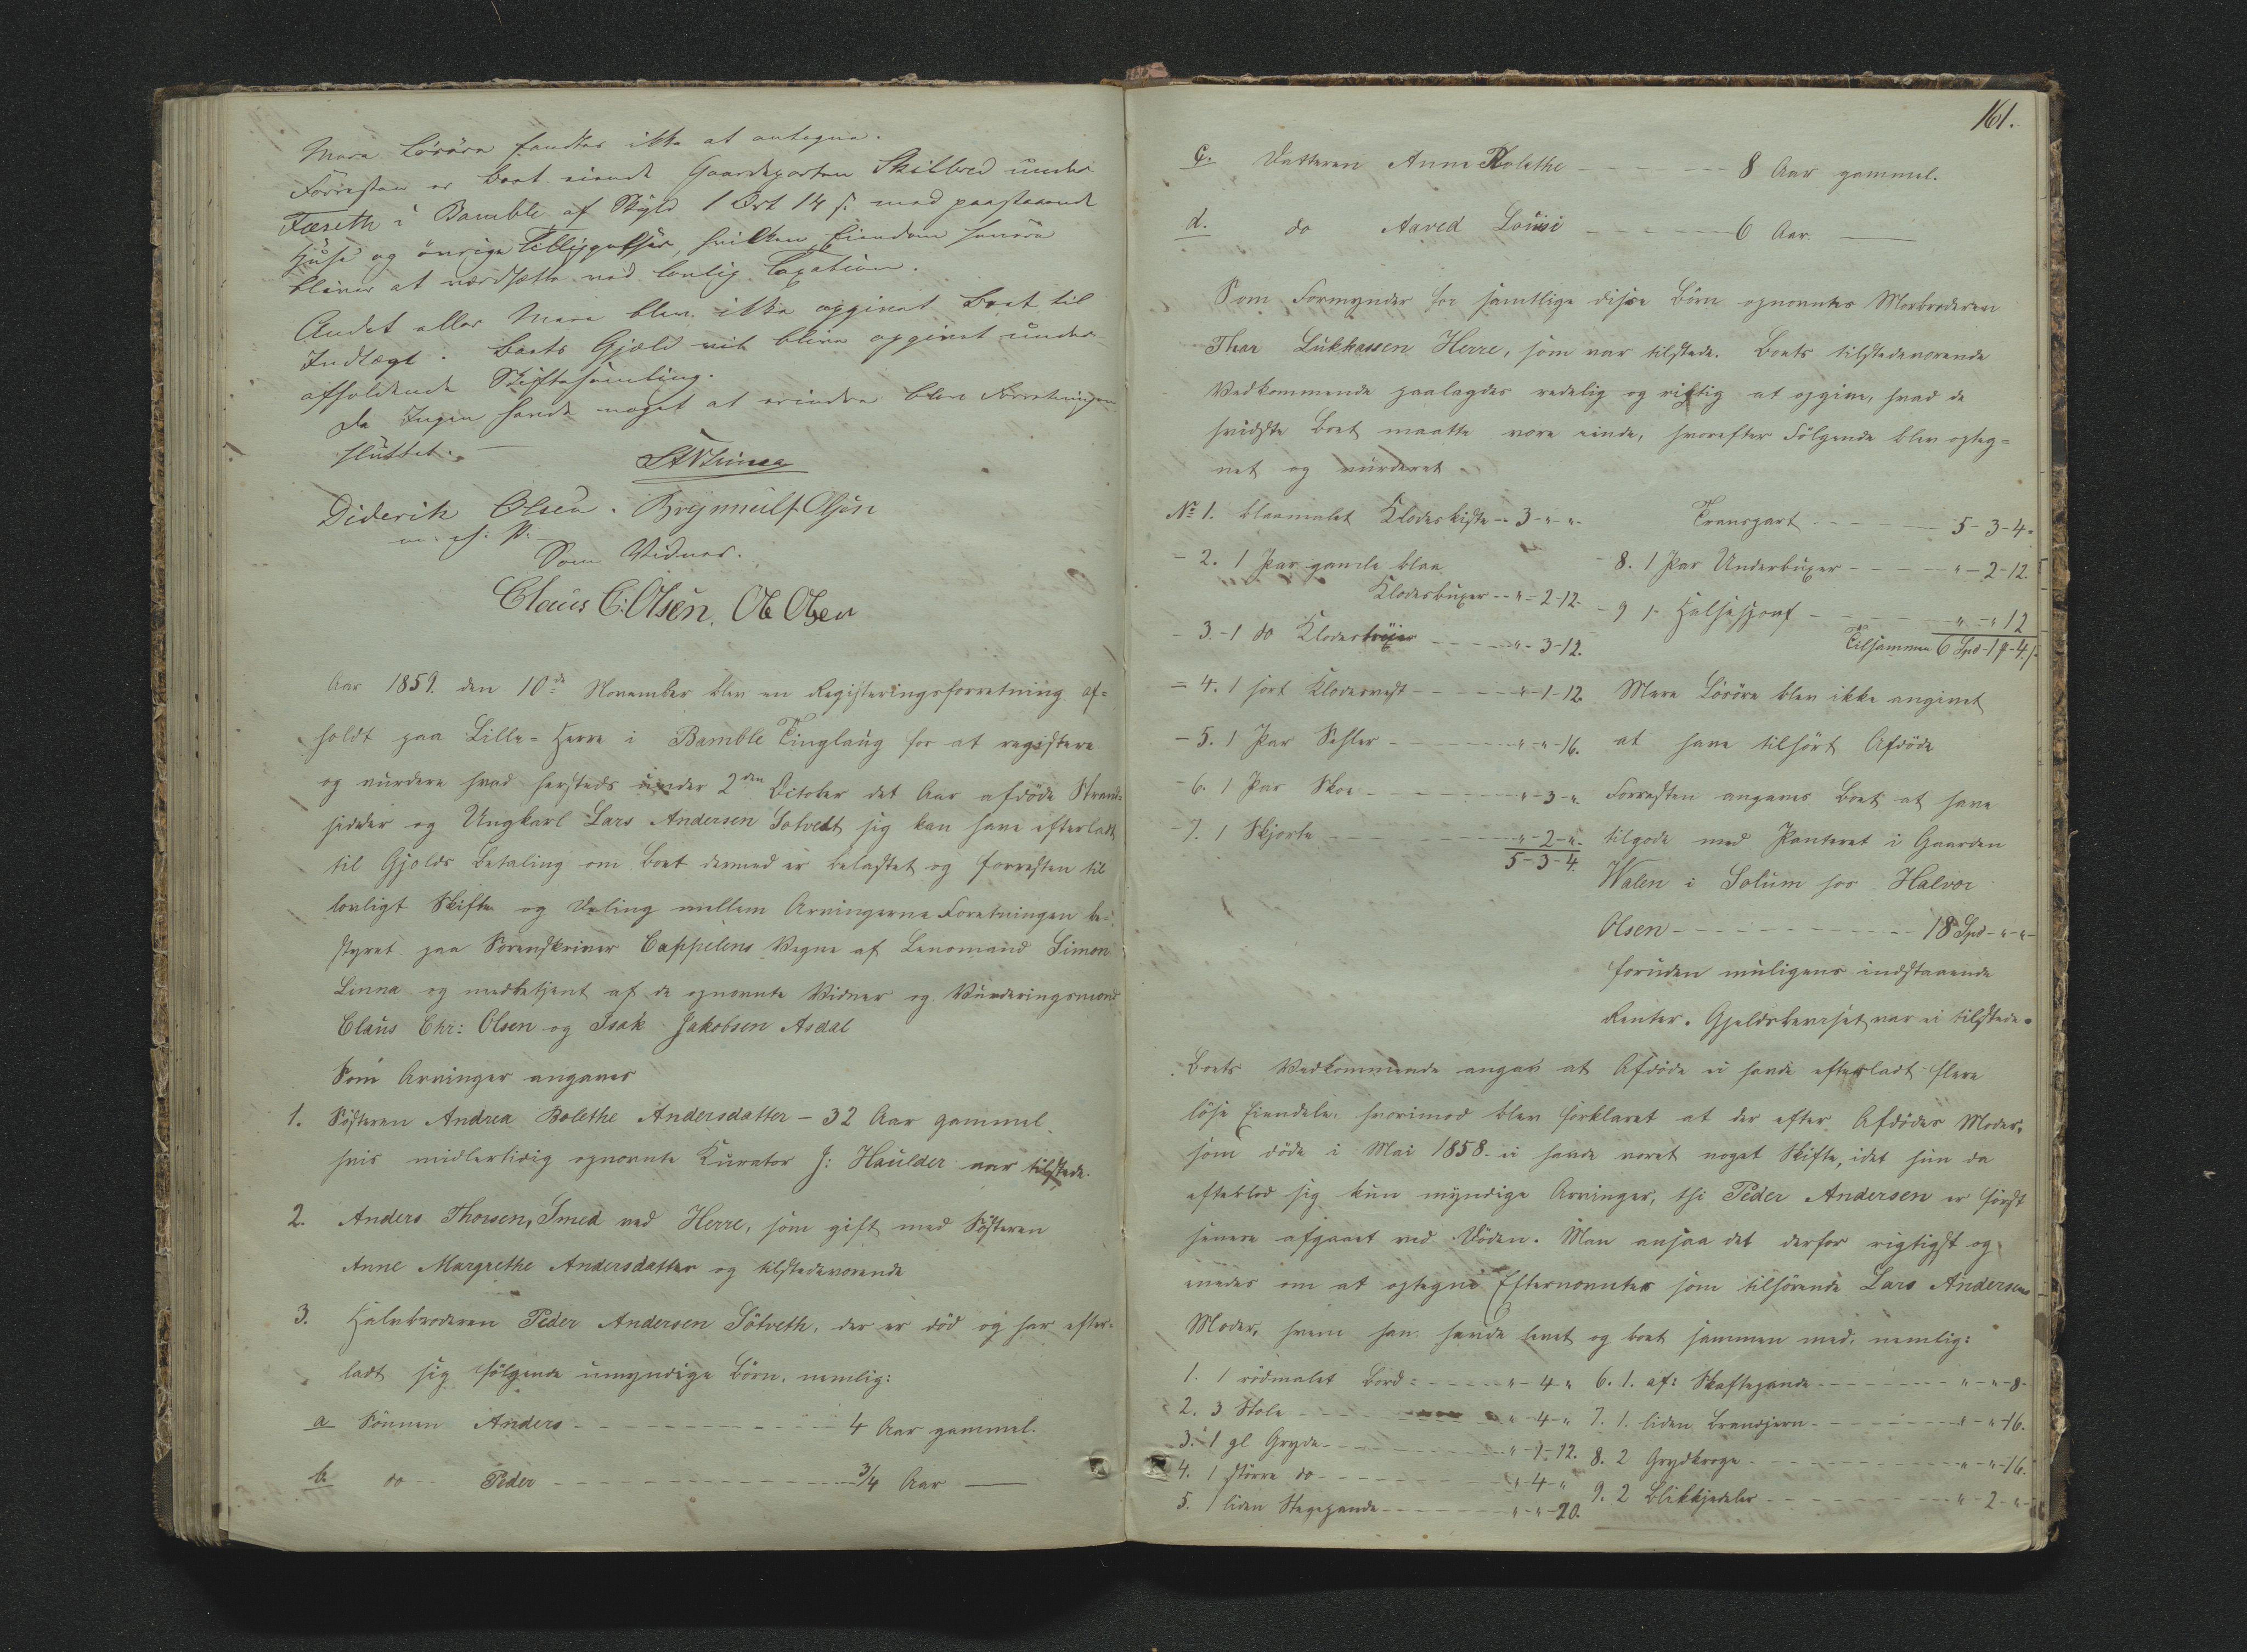 Mere Løsøre fandtes ikke at antegne.
Forresten er Boet eiende Gaardeparten Skilbred under
Fæseth i Bamble af Skyld 1 Ort 14 s. med paastaaende
Huse og øvrige Tilliggelser, hvilken Eiendom senere
bliver at værdsætte ved lovlig Taxation.
Andet eller Mere blev ikke opgivet Boet til
Indtægt. Boets Gjæld vil blive opgivet under
afholdende Skiftesamling.
Da Ingen havde noget at erindre blev Forretningen
sluttet.
Diderik Olsen. Brynnulf Olsen
m. p. P.
Som Vidner.
Claus C: Olsen. Ole Olsen
Aar 1859. den 10de November blev en Registeringsforretning af=
holdt paa Lille-Herre i Bamble Tinglaug for at registere
og vurdere hvad hersteds under 2den October det Aar afdøde Strand=
sidder og Ungkarl Lars Andersen Sotvedt sig kan have efterladt
til Gjelds Betaling om Boet dermed er belastet og forresten til
lovligt Skifte og Deling mellem Arvingerne Foretningen be=
styret paa Sorenskriver Cappelens Vegne af Lensmand Simon
Linna og medbetjent af de opnævnte Vidner og Vurderingsmænd
Claus Chr: Olsen og Isak Jakobsen Asdal
Som Arvinger angaves
1. Søsteren Andrea Bolethe Andersdatter - 32 Aar gammel
hvis midlertidig opnævnte Kurator J: Haulder var tilstede.
2. Anders Thorsen, Smed ved Herre, som gift med Søsteren
Anne Margrethe Andersdatter og tilstedeværende
3. Halvbroderen Peder Andersen Sötveth, der er død og har efter=
ladt sig følgende umyndige Børn, nemlig:
a Sønnen Anders - - - 4 Aar gammel.
b. do Peder - - - 3/4 Aar —
161.
c. Datteren Anne Bolethe - - - 8 Aar gammel.
d. do Aaved Louisi - - - 6 Aar. —
Som Formynder for samtlige disse Børn opnævntes Morbroderen
Thor Lukkassen Herre, som var tilstede. Boets tilstedeværende
Vedkommende paalagdes redelig og rigtig at opgive, hvad de
vidste Boet maatte være eiende, hvorefter Følgende blev opteg=
net og vurderet
No 1. blaamalet Klædeskiste - 3 - " - "
- 2. 1 Par gamle blaa
Klædesbuxer - " - 2 - 12.
- 3. - 1 do Klædestrøie - " - 3 - 12.
- 4. 1 sort Klædesvest - " - 1 - 12
- 5. 1 Par Sehler - " - " - 16.
- 6. 1 Par Skoe - " - 3 - "
- 7. 1 Skjorte - " - 2 - "
5 - 3 - 4.
Transport - 5 - 3 - 4.
- 8. 1 Par Underbuxer - " - 2 - 12.
- 9 1 - Halstørklæde - " - " 12
Tilsammen 6 Spd - 1 # - 4 s.
Mere Løsøre blev ikke angivet
at have tilhørt Afdøde
Forresten angaves Boet at have
tilgode med Panteret i Gaarden
Walen i Solum hos Halvor
Olsen - - - 18 Spd - " - "
foruden muligens indstaaende
Renter. Gjeldsbeviset var ei tilstede.
Boets Vedkommende angav at Afdøde ei havde efterladt flere
løse Eiendele, hvorimod blev forklaret at der efter Afdødes Moder,
som døde i Mai 1858. ei havde været noget Skifte, idet hun da
efterlod sig kun myndige Arvinger, thi Peder Andersen er først
senere afgaaet ved Døden. Man ansaa det derfor rigtigst og
enedes om at optegne Efternævnte som tilhørende Lars Andersens
Moder, hvem han havde levet og boet sammen med, nemlig:
1. 1 rødmalet Bord: - " - 4 - "
2. 3 Stole - " - 4 - "
3. - 1 gl Gryde - " - 1 - 12.
4. 1 større do - " - 4 - "
5. 1 liden Stegepande - " - " - 20.
6. 1. af: Skaftepande - " - " - 8 -
7. 1. liden Brandjern - " - " - 16.
8. 2 Grydkroge - " - " - 16.
9. 2 Blikkjedeler - " - 2 - "